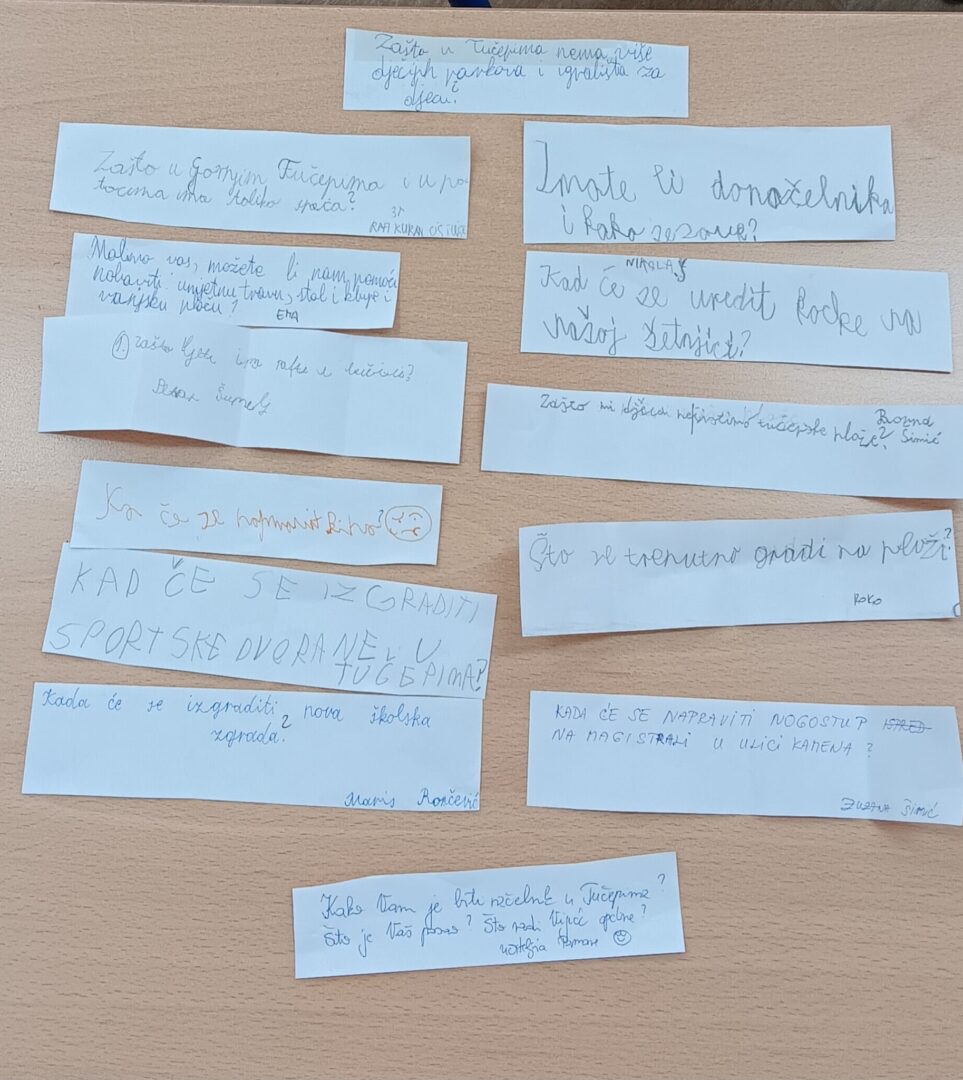 Zašto u Tučepima nema više
dječjih parkova i igrališta za
djecu?
Zašto u Gornjim Tučepima i u po-
tocima ima toliko smeća?
Imate li donačelnika
i kako se zove?
Molimo vas, možete li nam pomoći
nabaviti umjetnu travu, stol i klupe i
vanjsku ploču?
EMA
NIKOLA Š
Kad će se uredit kocke na
našoj šetnjici?
1. Zašto ljeti ima
Zašto mi djeca ne čistimo tučepske plaže?
Simić
Ka će se kino?
Što se trenutno gradi na plaži?
ROKO
KAD ČE SE IZGRADITI
SPORTSKE DVORANE U
TUČEPIMA?
Kada će se izgraditi nova školska
zgrada?
Maris Rončević
KADA ĆE SE NAPRAVITI NOGOSTUP ISPRED
NA MAGISTRALI U ULICI KAMENA?
ZUZANA ŠIMIĆ
Kako Vam je biti načelnik u Tučepima?
Što je Vaš posao? Što radi Vijeće općine?
učiteljica